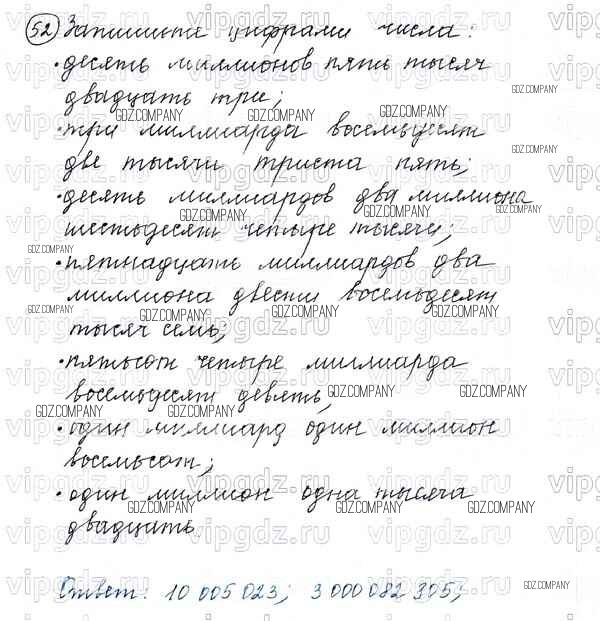 52 Запишите цифрами числа:
• десять миллионов пять тысяч
двадцать три;
• три миллиарда восемьдесят
две тысячи триста пять;
• десять миллиардов два миллиона
шестьдесят четыре тысячи;
• пятнадцать миллиардов два
миллиона двести восемьдесят
тысяч семь;
• пятьсот четыре миллиарда
восемьдесят девять;
• один миллиард один миллион
восемьсот;
• один миллион одна тысяча
двадцать.
Ответ: 10 005 023; 3 000 082 305;